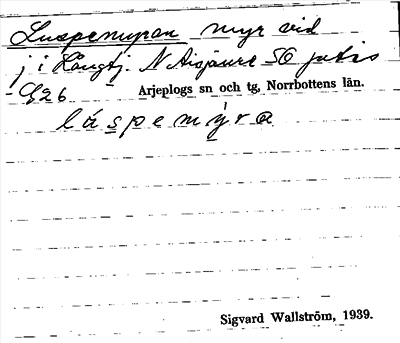 Luspemyran myr vid
j i Långtj. N Aisjaure SO Jutis
G26 Arjeplogs sn och tg, Norrbottens län.
láspemy̆ra
Sigvard Wallström, 1939.